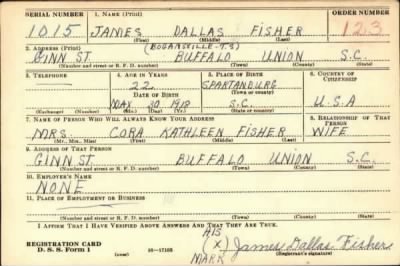 SERIAL NUMBER 1. NAME (Print) ORDER NUMBER
1015 JAMES DALLAS FISHER 123
(First) (Middle) (Last)
2. ADDRESS (Print) (BOGANSVILLE-T.S)
GINN ST. BUFFALO UNION S.C.
(Number and street or R. F. D. number) (Town) (County) (State)
3. TELEPHONE 4. AGE IN YEARS 5. PLACE OF BIRTH 6. COUNTRY OF CITIZENSHIP
22 SPARTANBURG
DATE OF BIRTH (Town or county)
MAY 30 1918 S.C. U.S.A
(Exchange) (Number) (Mo.) (Day) (Yr.) (State or country)
7. NAME OF PERSON WHO WILL ALWAYS KNOW YOUR ADDRESS 8. RELATIONSHIP OF THAT PERSON
MRS. CORA KATHLEEN FISHER WIFE
(Mr., Mrs., Miss) (First) (Middle) (Last)
9. ADDRESS OF THAT PERSON
GINN ST. BUFFALO UNION S.C.
(Number and street or R. F. D. number) (Town) (County) (State)
10. EMPLOYER'S NAME
NONE
11. PLACE OF EMPLOYMENT OR BUSINESS
(Number and street or R. F. D. number) (Town) (County) (State)
I AFFIRM THAT I HAVE VERIFIED ABOVE ANSWERS AND THAT THEY ARE TRUE.
HIS
REGISTRATION CARD (X) James Dallas Fisher
D. S. S. Form 1 16-17105 MARK (Registrant's signature)